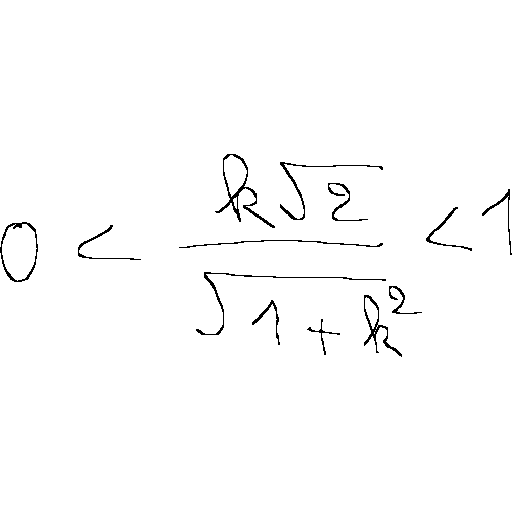 0 < \frac{k\sqrt{2}}{\sqrt{1+k^2}} < 1